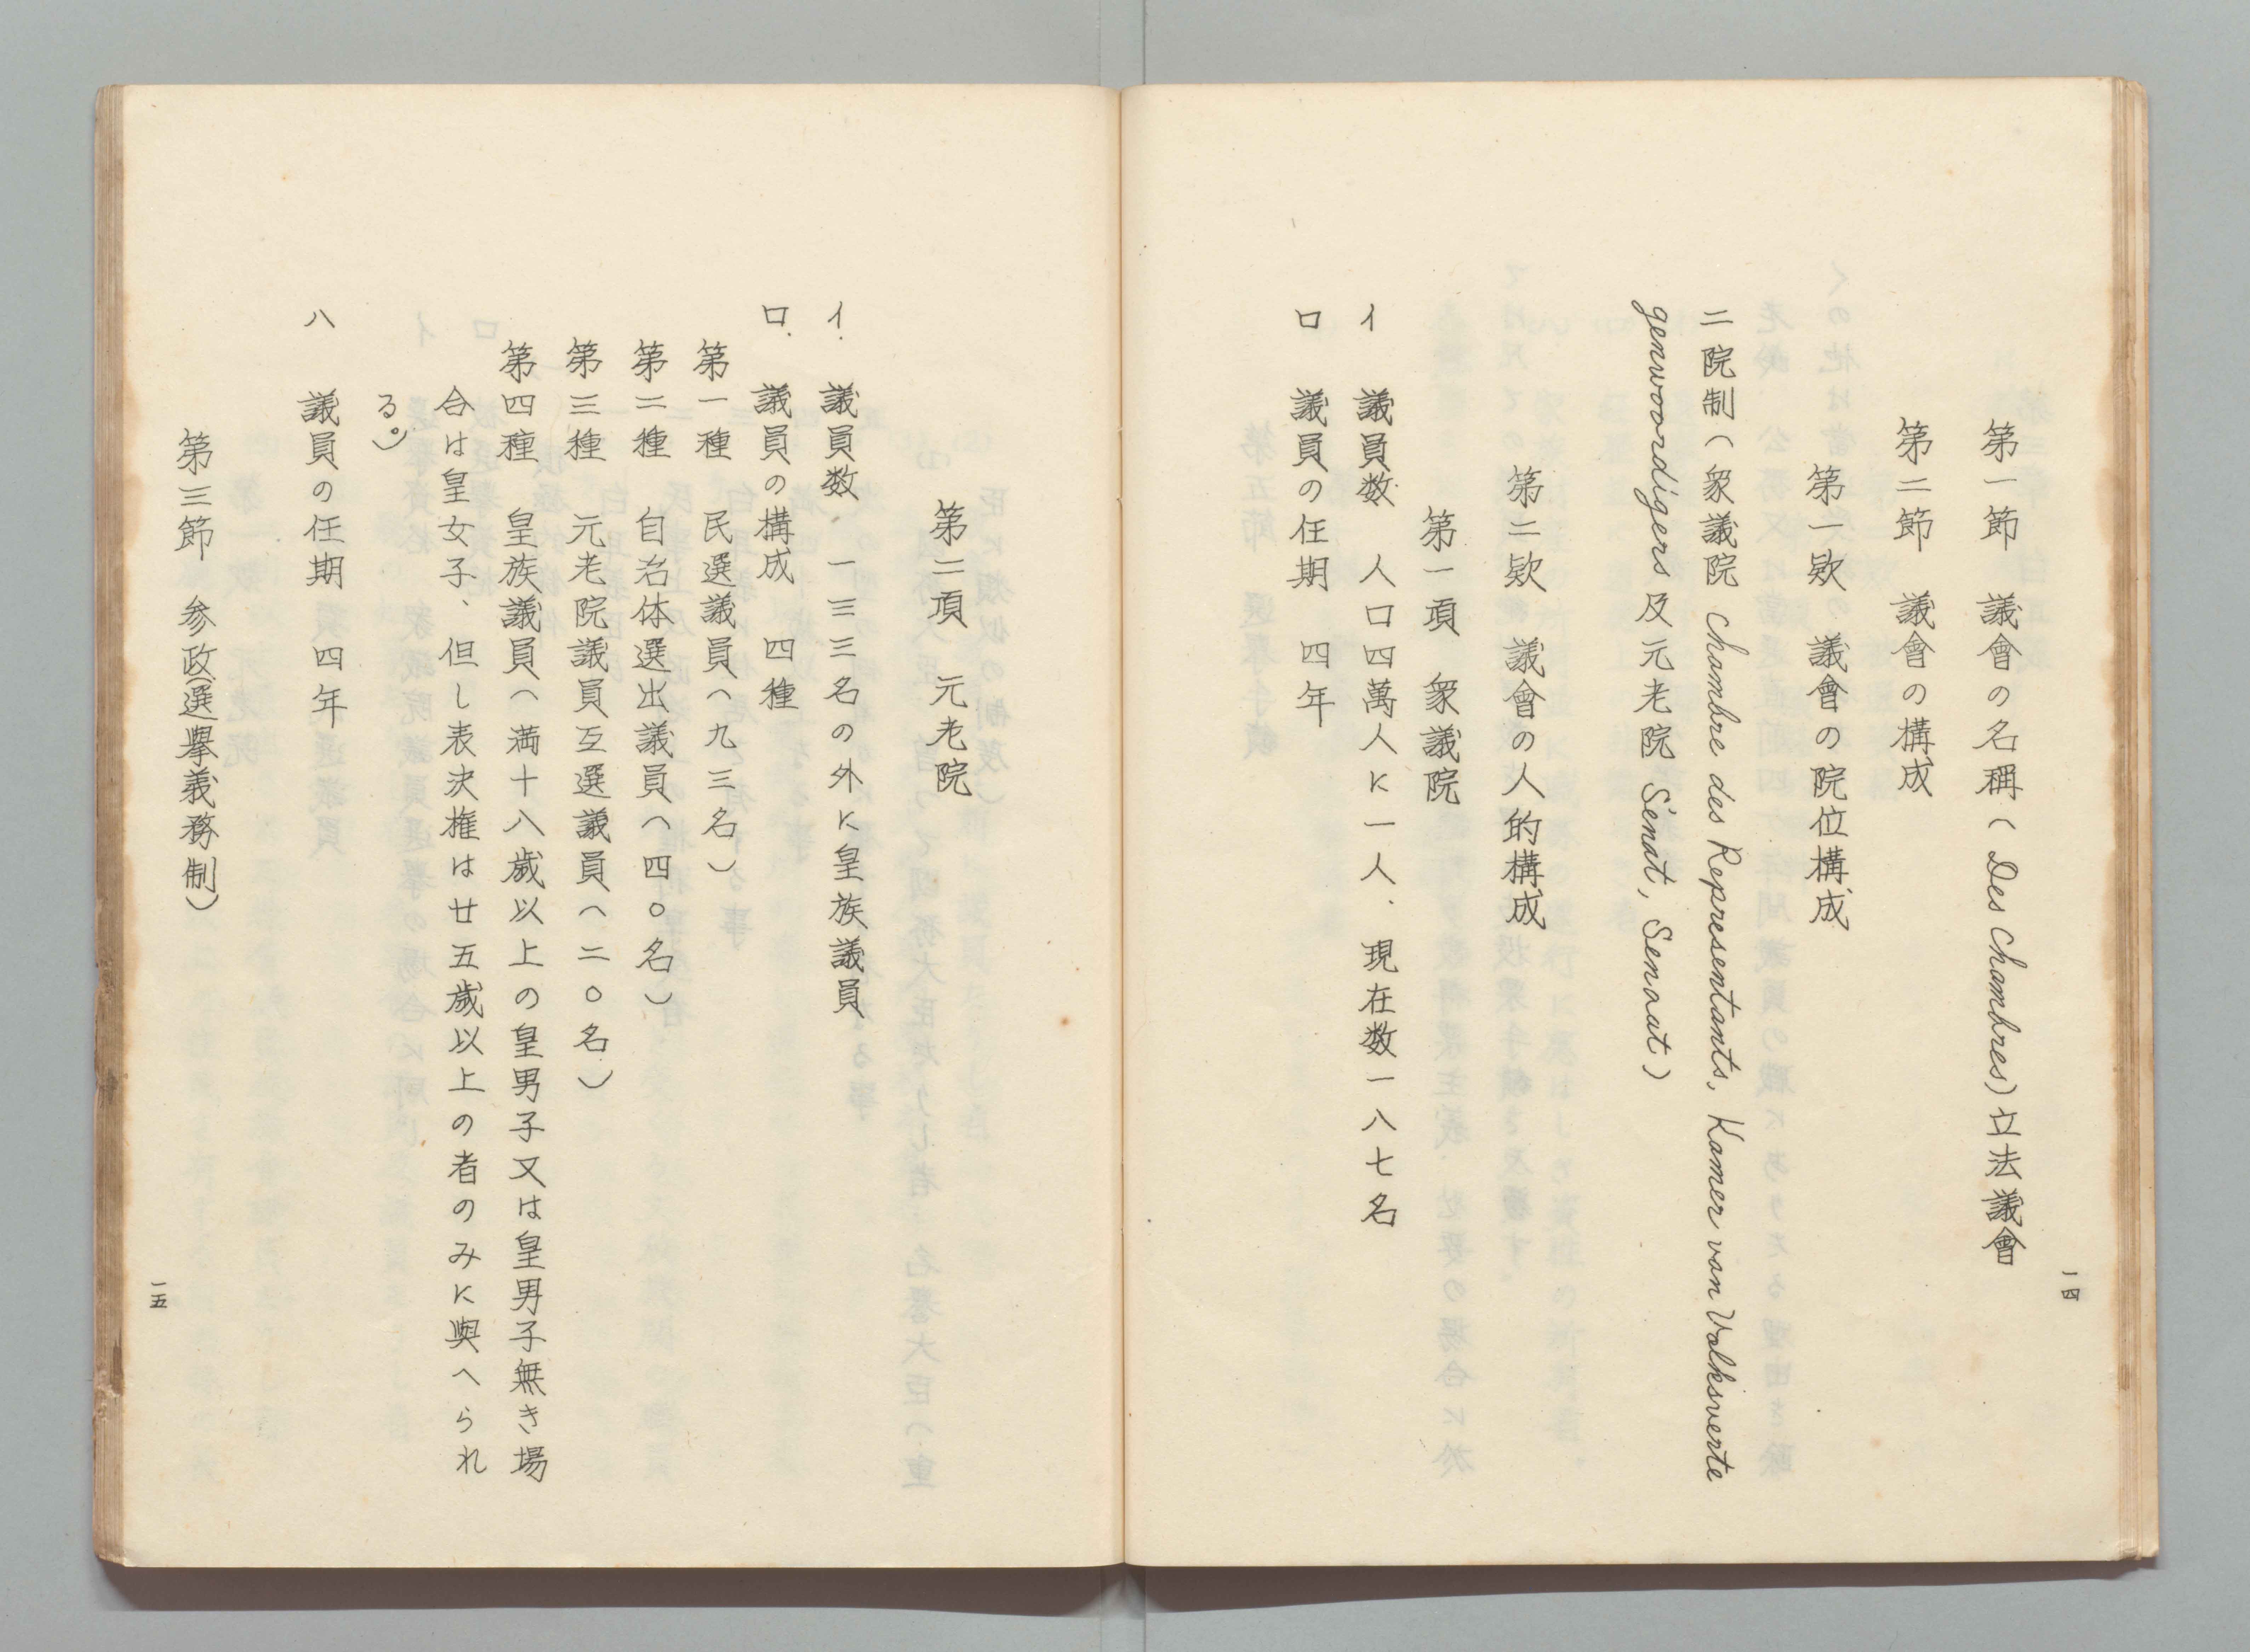 第一節　議會の名稱（Des Chambres）立法議會
第二節　議會の構成
第一欵　議會の院位構成
二院制（衆議院 Chambre des Representants, Kamer van Volksverte
genwoordigers 及元老院 Sénat, Senaat）
第二欵　議會の人的構成
第一項　衆議院
イ　議員数　人口四萬人に一人．現在数一八七名
ロ　議員の任期　四年
一四
第二項　元老院
イ．議員数　一三三名の外に皇族議員
ロ．議員の構成　四種
第一種　民選議員（九三名）
第二種　自治体選出議員（四〇名）
第三種　元老院議員互選議員（二〇名）
第四種　皇族議員（満十八歳以上の皇男子又は皇男子無き場
合は皇女子、但し表決権は廿五歳以上の者のみに與へられ
る。）
ハ　議員の任期　四年
第三節　参政（選擧義務制）
一五